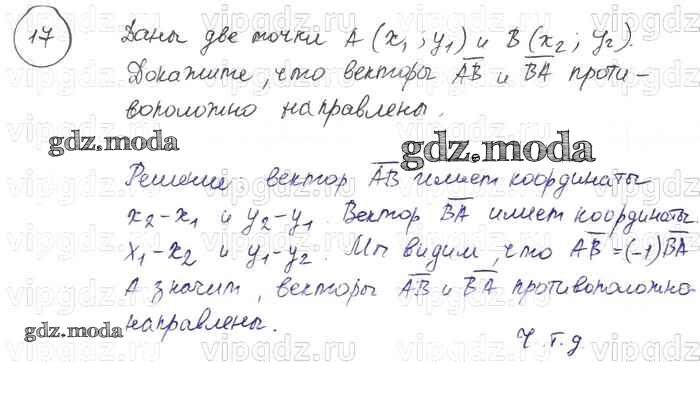 17 Даны две точки A (x₁; y₁) и B (x₂; y₂).
Докажите, что векторы A̅B̅ и B̅A̅ проти-
воположно направлены.
gdz.moda gdz.moda
Решение: вектор A̅B̅ имеет координаты
x₂-x₁ и y₂-y₁. Вектор B̅A̅ имеет координаты
x₁-x₂ и y₁-y₂. Мы видим, что A̅B̅=(-1)B̅A̅
А значит, векторы A̅B̅ и B̅A̅ противоположно
направлены.
gdz.moda
Ч.т.д.
vipgdz.ru